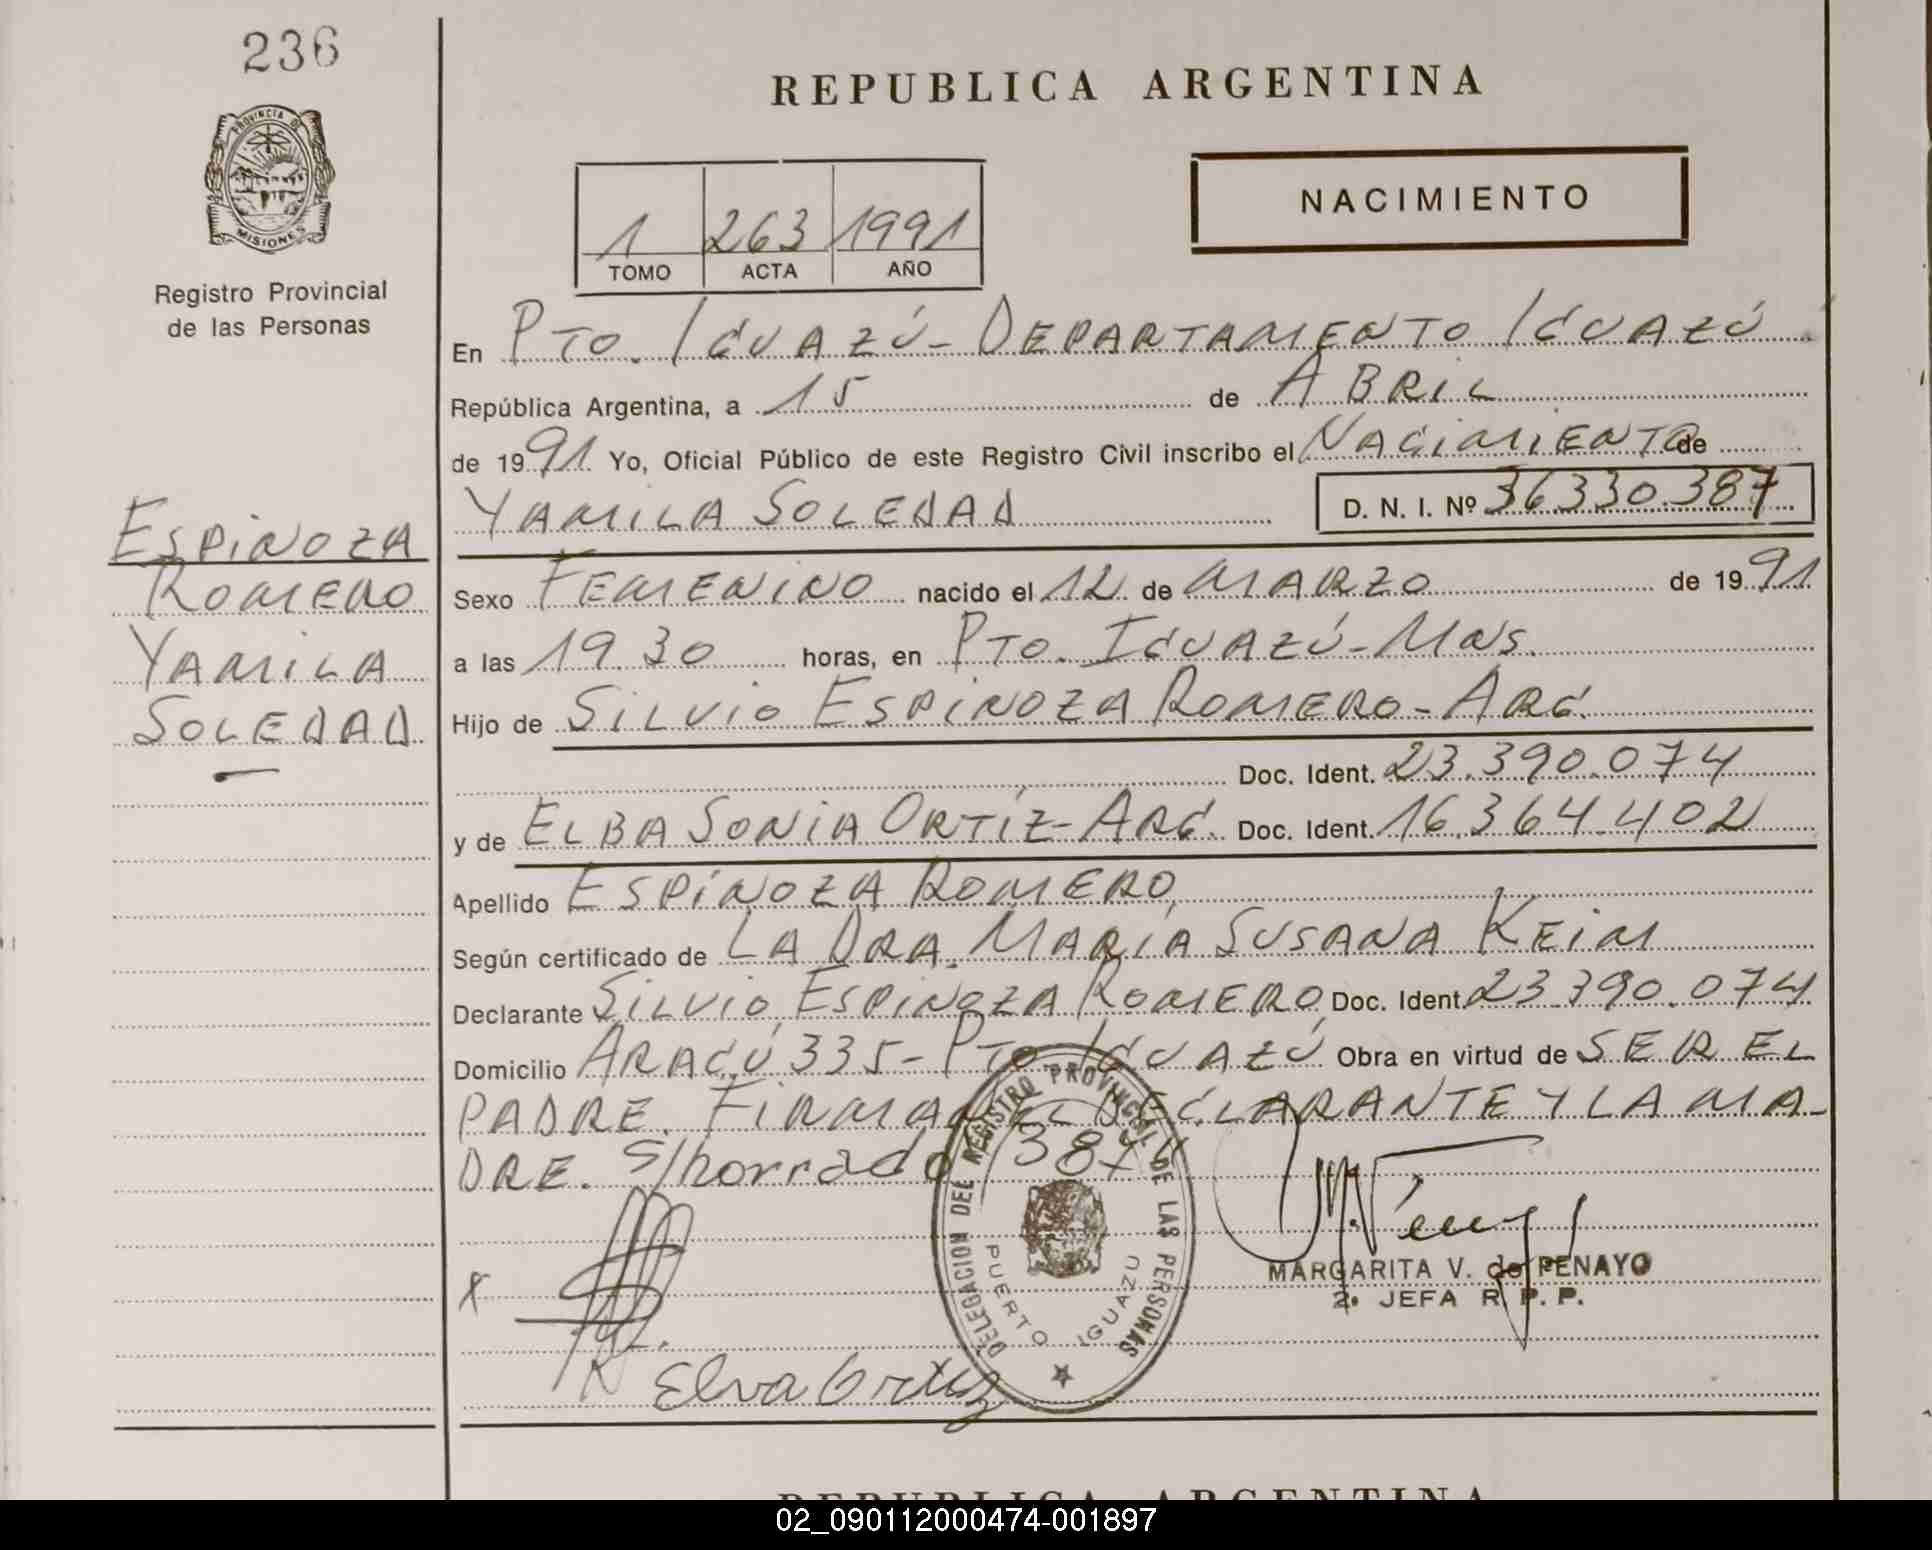 236
REPUBLICA ARGENTINA
PROVINCIA DE
MISIONES
NACIMIENTO
1 263 1991
TOMO ACTA AÑO
Registro Provincial
de las Personas
En PTO. IGUAZÚ - DEPARTAMENTO IGUAZÚ
República Argentina, a 15 de ABRIL
de 1991 Yo, Oficial Público de este Registro Civil inscribo el NACIMIENTO de
YAMILA SOLEDAD D. N. I. Nº 36330.387
ESPINOZA
ROMERO
YAMILA
SOLEDAD
Sexo FEMENINO nacido el 12 de MARZO de 1991
a las 19.30 horas, en PTO. IGUAZÚ - MNS.
Hijo de SILVIO ESPINOZA ROMERO - ARG.
Doc. Ident. 23.390.074
y de ELBA SONIA ORTÍZ - ARG. Doc. Ident. 16.364.402
Apellido ESPINOZA ROMERO,
Según certificado de LA DRA. MARÍA SUSANA KEIM
Declarante SILVIO ESPINOZA ROMERO Doc. Ident. 23.390.074
Domicilio ARAGÚ 335 - PTO. IGUAZÚ Obra en virtud de SER EL
PADRE. FIRMAN EL DECLARANTE Y LA MA-
DRE. S/borrado "387"
DELEGACION DEL REGISTRO PROVINCIAL DE LAS PERSONAS
PUERTO IGUAZU
MARGARITA V. de PENAYO
2º JEFA R. P. P.
X
Elva Ortiz
REPUBLICA ARGENTINA
02_090112000474-001897